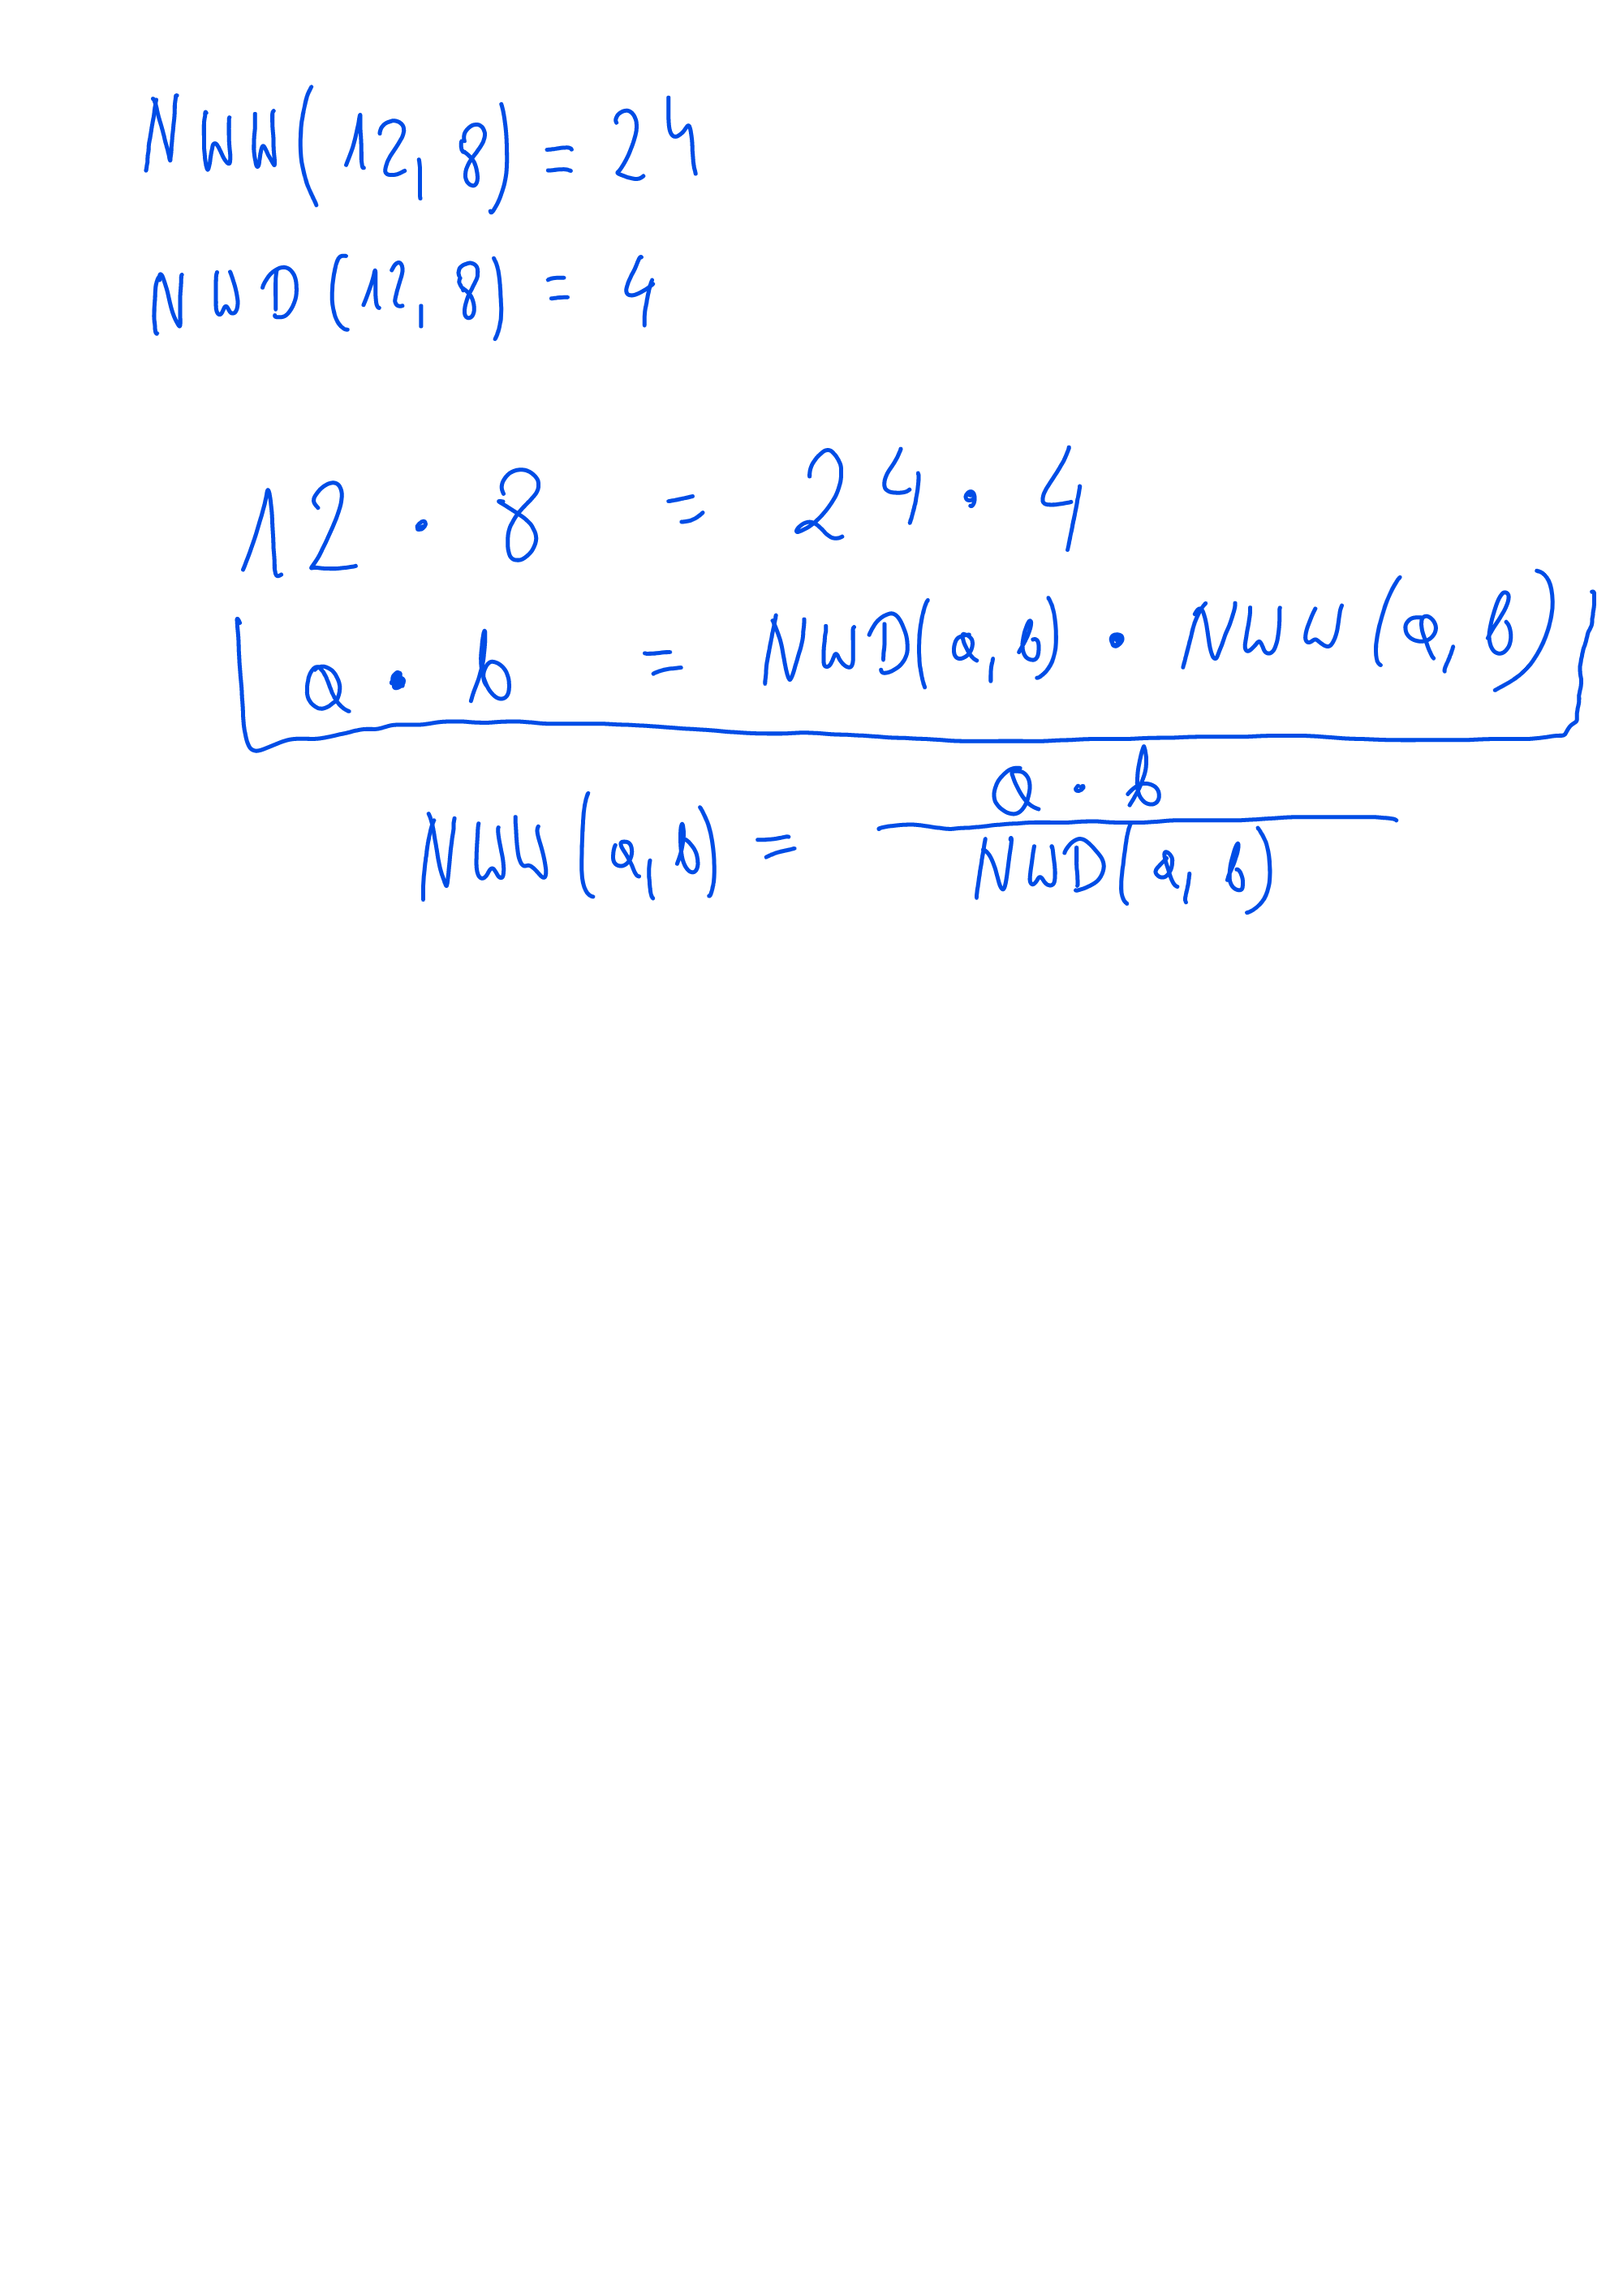 NWW(12, 8) = 24
NWD(12, 8) = 4
12 · 8 = 24 · 4
a · b = NWD(a, b) · NWW(a, b)
a · b
NWW(a, b) =
NWD(a, b)